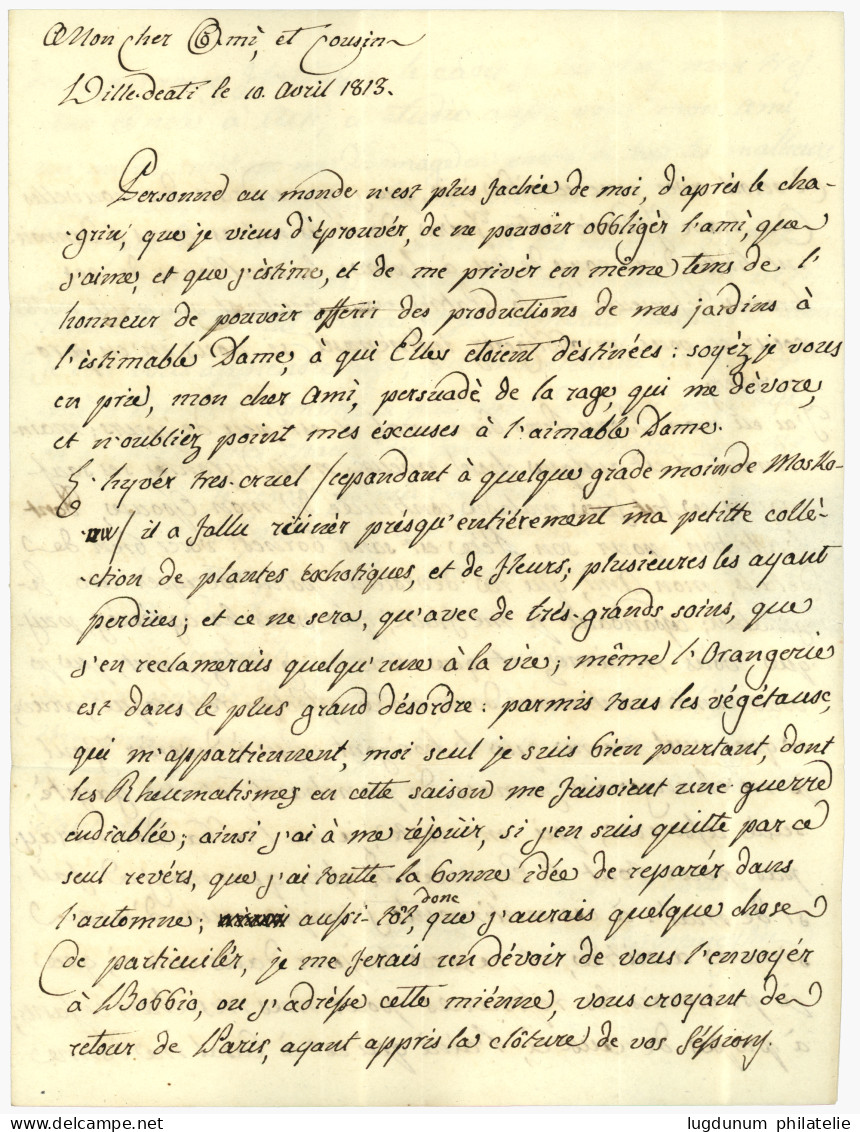 Mon cher Ami, et Cousin
Ville-deati le 10. Avril 1813.
Personne au monde n'est plus fachée de moi, d'après le cha-
grin, que je viens d'éprouvér, de ne pouvoir obbligèr l'ami, que
j'aime, et que j'éstime, et de me privér en même tems de l'
honneur de pouvoir offerir des productions de mes jardins à
l'èstimable Dame, à qui Elles etoient dèstinées: soyèz je vous
en prie, mon cher Ami, persuadè de la rage, qui me dèvore,
et n'oublièz point mes éxcuses à l'aimable Dame.
L'hyvér tres-cruel /cepandant à quelque grade moin de Mosko-
/ il a fallu rüinèr présqu'entiérement ma petitte collè-
ction de plantes exchotiques, et de fleurs; plusieures les ayant
perdües; et ce ne sera, qu'avec de trés-grands soins, que
j'en reclamerais quelqu'une à la vie; même l'Orangerie
est dans le plus grand désordre: parmis tous les végétause,
qui m'appartiennent, moi seul je suis bien pourtant, dont
les Rheumatismes en cette saison me faisoient une guerre
endiablée; ainsi j'ai à me réjoüir, si j'en suis quitte par ce
seul revérs, que j'ai toutte la bonne idée de reparér dans
l'automne; aussi-tôt, donc que j'aurais quelque chose
de particuilér, je me ferais un dévoir de vous l'envoyér
à Bobbio, ou j'adrèsse cette miénne, vous croyant de
retour de Paris, ayant appris la clôture de vos Séssions.
lugdunum philatelie